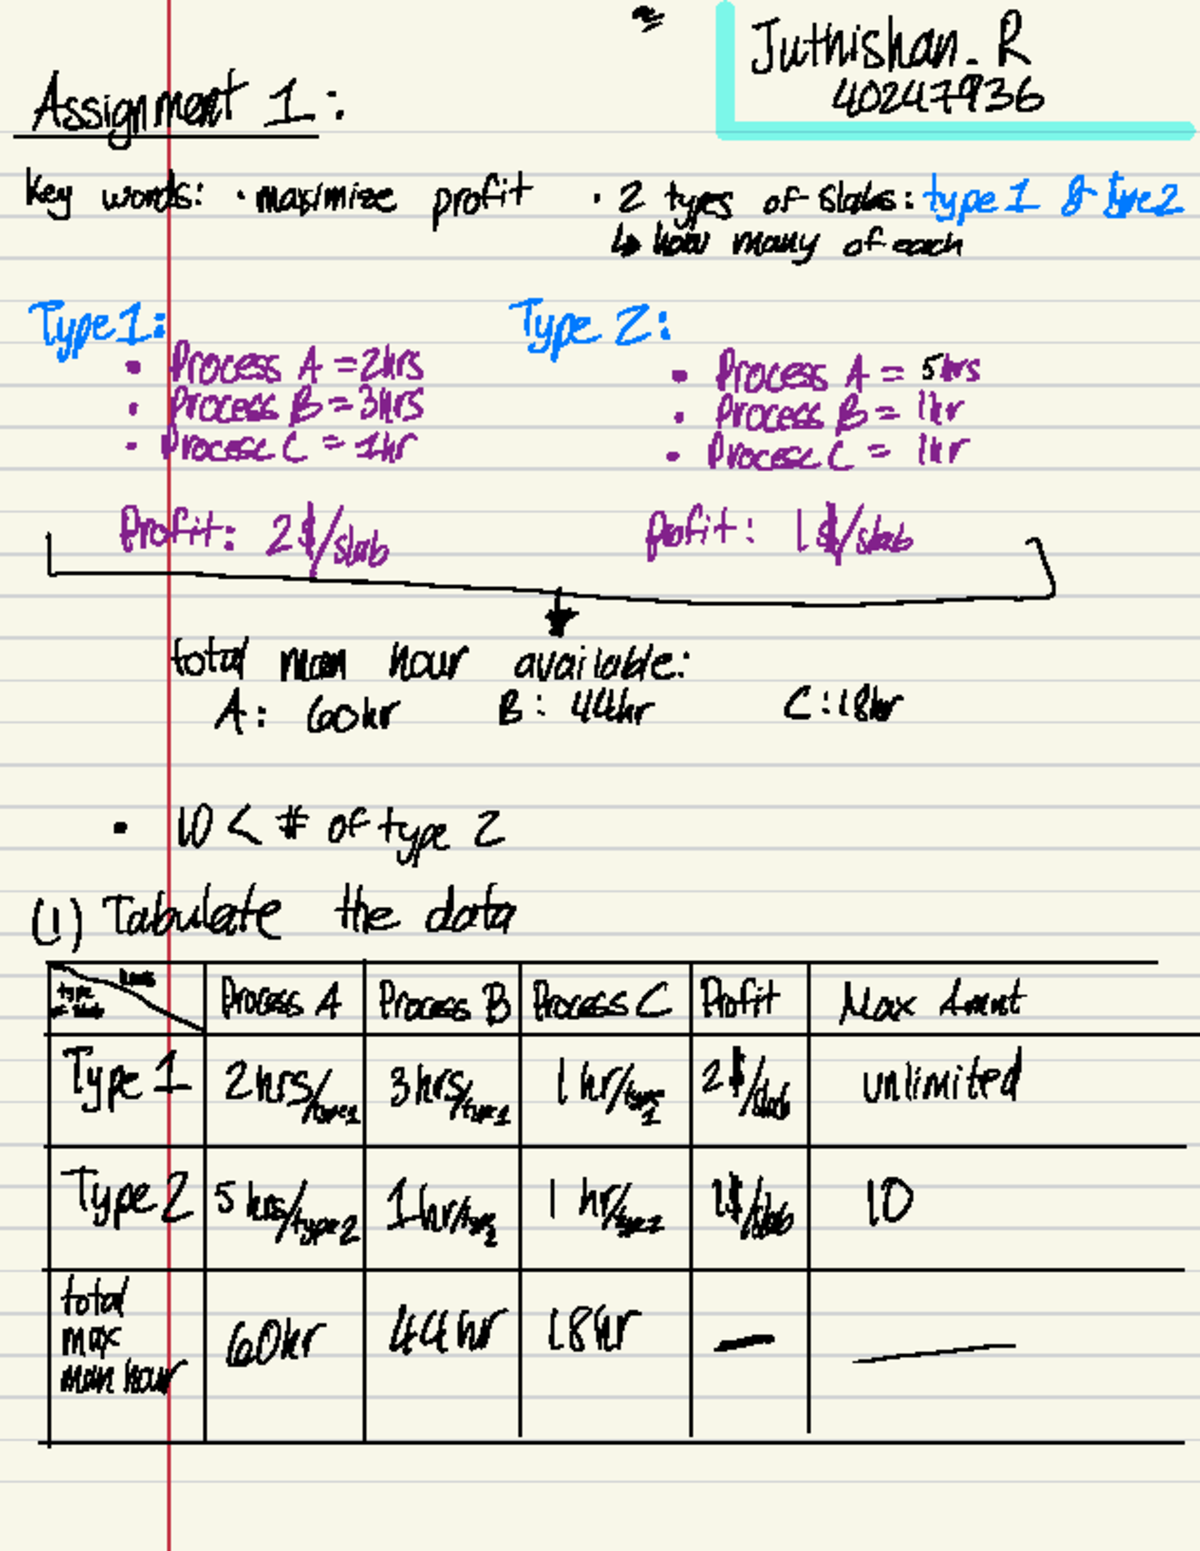 Juthishan. R
40247936
Assignment 1:
Key words: • maximize profit • 2 types of slabs: type 1 & type 2
↳ how many of each
Type 1: Type 2:
• Process A = 2hrs • Process A = 5hrs
• Process B = 3hrs • Process B = 1hr
• Process C = 1hr • Process C = 1hr
Profit: 2$/slab Profit: 1$/slab
total man hour available:
A: 60hr B: 44hr C: 18hr
• 10 < # of type 2
(1) Tabulate the data
type Process A Process B Process C Profit Max Amnt
Type 1 2hrs/type1 3hrs/type1 1hr/type 1 2$/slab unlimited
Type 2 5 hrs/type2 1hr/type 2 1 hr/type2 1$/slab 10
total max man hour 60hr 44hr 18hr — —